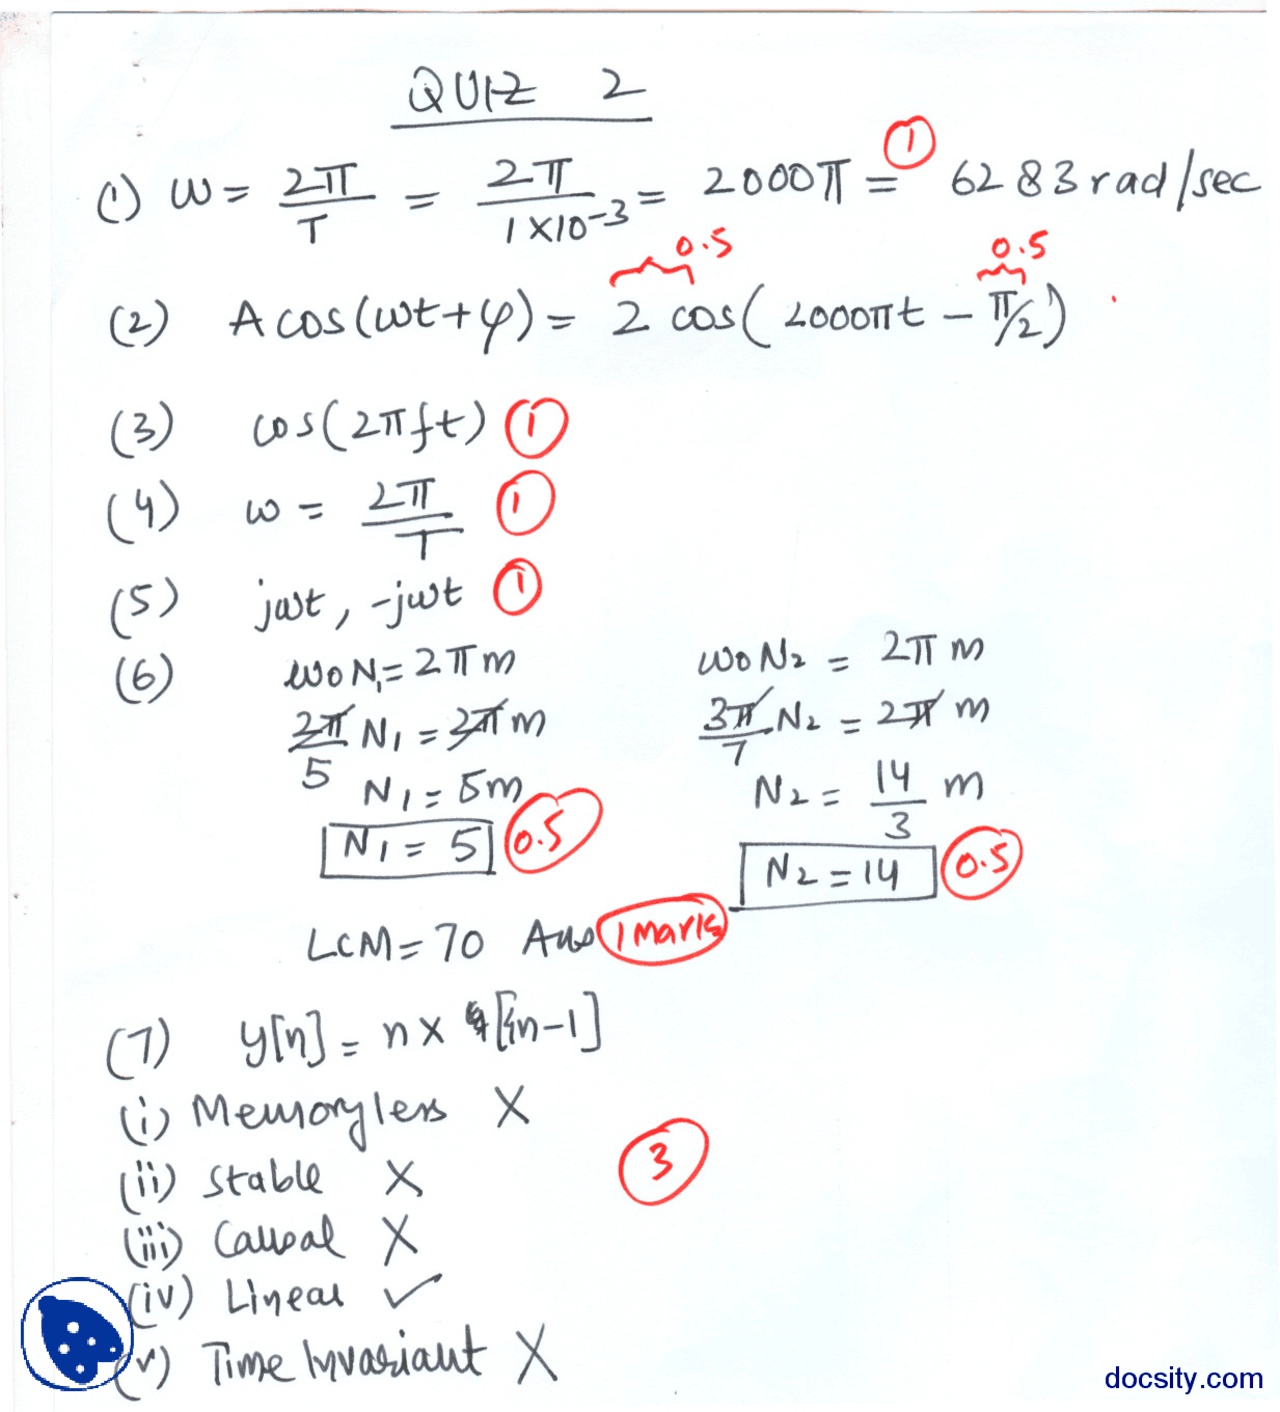 QUIZ 2
(1) W = 2π/T = 2π/1×10^-3 = 2000π = 6283 rad/sec
1
0.5 0.5
(2) A cos(ωt+φ) = 2 cos(2000πt − π/2)
(3) cos(2πft) 1
(4) ω = 2π/T 1
(5) jωt, -jωt 1
(6) ω0N1 = 2πm ω0N2 = 2πm
2π/5 N1 = 2πm 3π/7 N2 = 2πm
N1 = 5m N2 = 14/3 m
N1 = 5 0.5 N2 = 14 0.5
LCM = 70 Ans 1 Mark
(7) y[n] = n x [n-1]
(i) Memoryless X
(ii) Stable X
3
(iii) Causal X
(iv) Linear ✓
(v) Time Invariant X
docsity.com